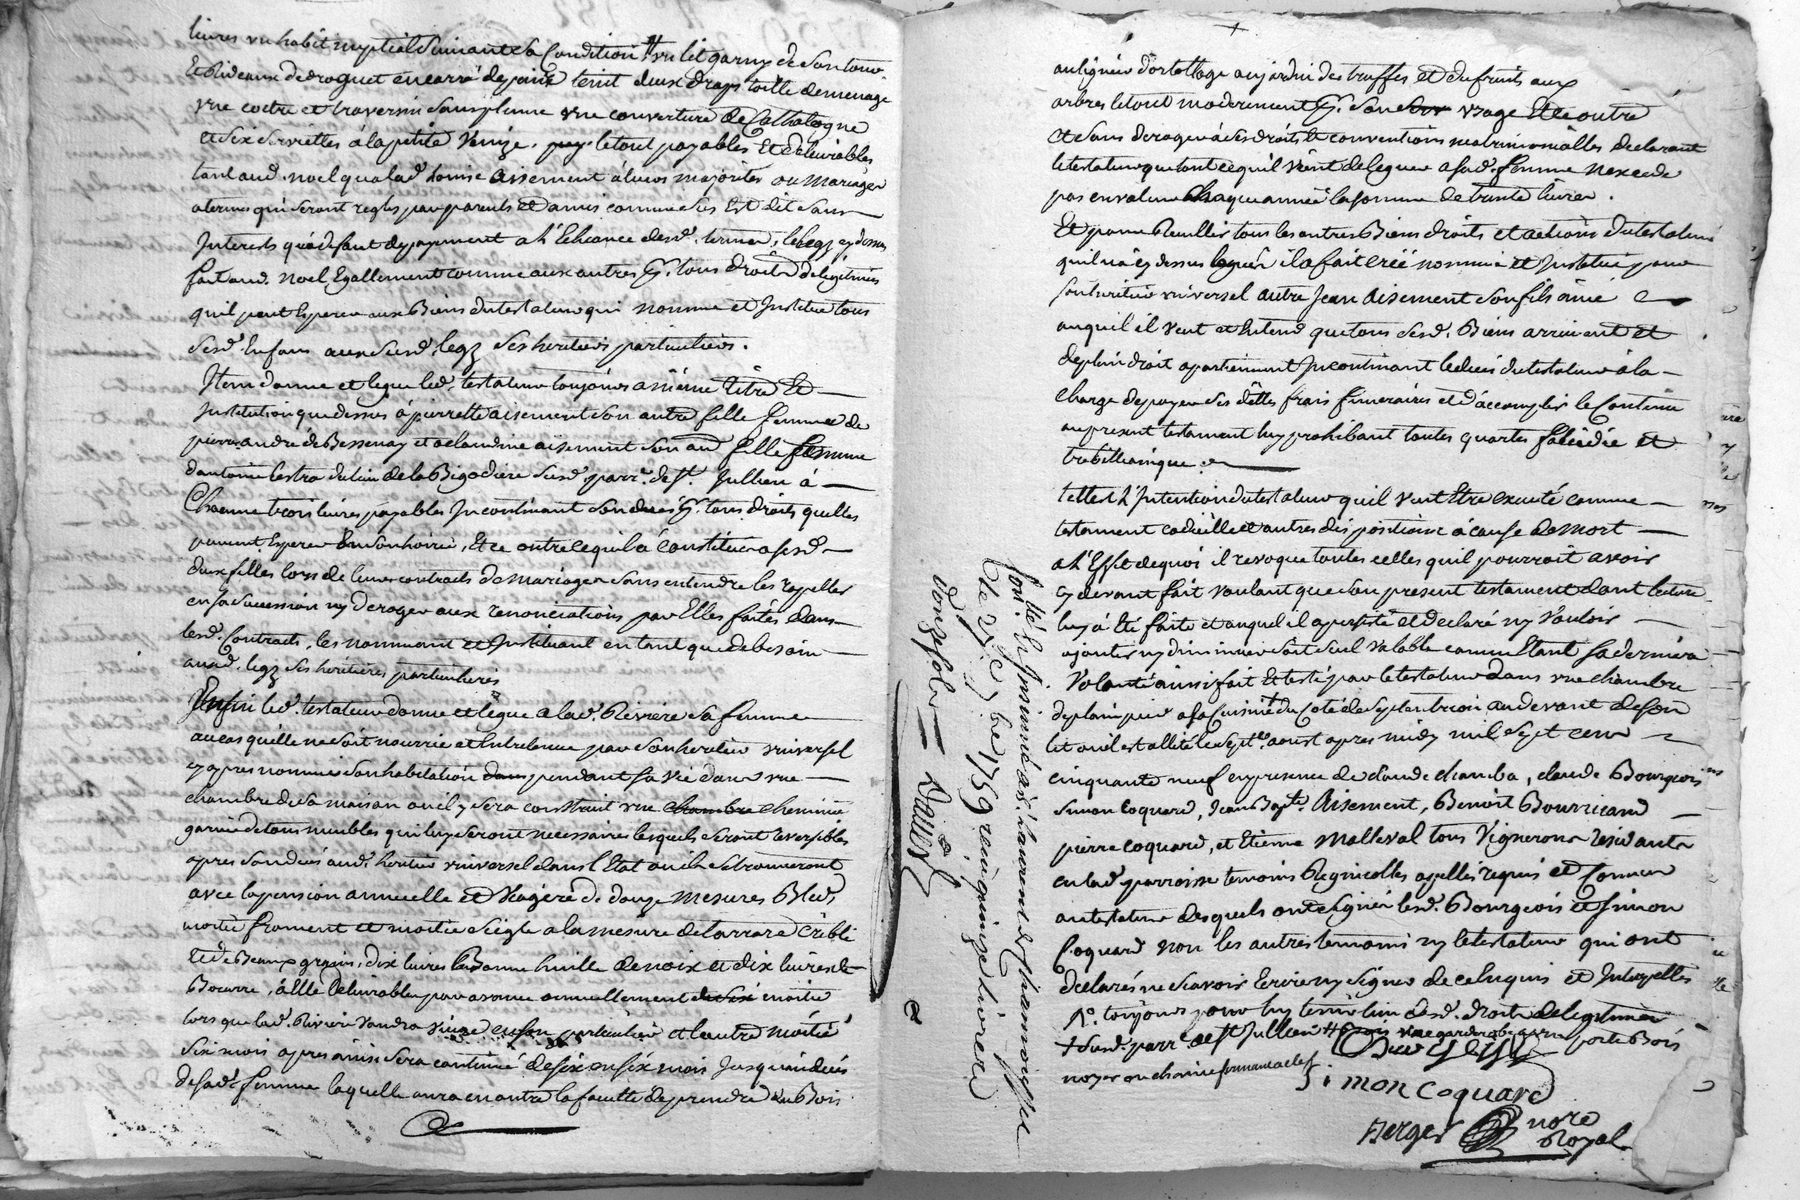 livres un habit nuptial suivant sa Condition # un lit garny de son tour
Et Rideaux de droguet encarré de peint teint deux draps toille de menage
une coetre et traversin sans plume une couverture de Cathalogne
et six serviettes a la petite Venize, le tout payables Et delivrables
tant aud. noel qua lad. aisement a leurs majorités ou mariages
a termes qui seront reglés par parents et amis comme dit Est dit sans
Interests qu'a defaut de payement a l'Echeance desd. termes, le legz cy dessus
fait aud. noel Egallement comme aux autres p. tous droits de legitimes
quil peut Esperer aux Biens du testateur qui nomme et Institue tous
sesd. Enfans auxd. susd. legz ses heritiers particuliers.
Item donne et legue led. testateur toujours a même titre Et
Institution que dessus à pierrette aisement son autre fille femme de
pierre andré de Bessenay et a claudine aisement son au. fille femme
d'antoine lestra du lieu de la Bigodiere susd. parr. de St. Jullien à
Chacune trois livres payables Incontinant son decès p. tous droits quelles
peuvent Esperer En son hoirie, Et ce outre ce quil a constitué a sesd.
deux filles lors de leurs contracts de mariage sans entendre les rapeller
en sa succession ny deroger aux renonciations par Elles faites dans
lesd. Contracts, les nommant et Instituant en tant que de besoin
auxd. legz ses heritieres particulieres
Enfin led. testateur donne et legue a lad. Riviere sa femme
au cas quelle ne soit nourrie et Entretenue par son heritier universel
cy apres nommé son habitation pendant sa vie dans une
chambre de sa maison ou il y sera construit une chambre cheminée
garnie de tous meubles qui luy seront necessaires lesquels seront reversibles
apres son decès aud. heritier universel dans l'Etat ou ils se trouveront
avec la pension annuelle et viagere de douze mesures Bled,
moitié froment et moitié seigle a la mesure de larrare criblé
Et de Beaux grains, dix livres Bonne huille de noix et dix livres de
Beurre, a Elle delivrables par avance annuellement moitié
lors que lad. Riviere voudra vivre en son particulier et l'autre moitié
six mois apres ainsi sera continué de six en six mois Jusqu'au decès
de sad. femme laquelle aura en outre la faculté de prendre du Bois
Conllé & Insinué a St laurent de Chamousset
Le 7bre 1759 reçu quinze livres
douze sols =
au ligné d'ortollage au jardin des truffes et du fruits aux
arbres le tout moderement p. son usage Et ce outre
et sans deroger à ses droits Et conventions matrimonialles declarant
le testateur que tout ce quil vient de leguer a sad. femme n'excede
pas en valeur chaque année la somme de trente livres.
Et pour Recuillir tous les autres Biens droits et actions du testateur
quil n'a cy dessus legués il a fait créé nommé et Institué pour
son heritier universel autre Jean aisement son fils ainé
auquel il veut et Entend que tous sesd. Biens arrivent et
de plein droit apartiennent Incontinant le decès du testateur à la
charge de payer ses dettes frais funeraires et d'accomplir le Contenu
au present testament luy prohibant toutes quartes falcidie et
trebellianique.
telle Est L'Intention du testateur quil veut Etre executé comme
testament codicille et autres dispositions à cause de mort
a l'Effet de quoi il revoque toutes celles quil pourroit avoir
cy devant fait voulant que son present testament dont lecture
luy a Eté faite et auquel il a persisté et declaré ny vouloir
ajouter ny diminuer soit seul valable comme Etant sa derniere
Volonté ainsi fait Et testé par le testateur dans une chambre
de plain pied a sa cuisine † du coté de septentrion au devant de son
lit ou il est allité le aoust apres midy mil sept cens
cinquante neuf en presence de claude chamba, claude Bourgeois
simon Coquard, Jean Bapte. Aisement, Benoit Bourricand
pierre Coquard, et Etienne Malleval tous Vignerons residants
en lad. parroisse temoins Regnicolles apellés requis et Connus
au testateur desquels ont signés lesd. Bourgeois et simon
Coquard non les autres temoins ny le testateur qui ont
declarés ne scavoir Ecrire ny signer de ce Enquis et Interpellés
toujours pour luy tenir lieu desd. droits de legitimes
† susd. parr. de St. Jullien # garderobe a porte Bois
noyer ou chaine fermant a clef
simon coquard
Berger nore
Royal